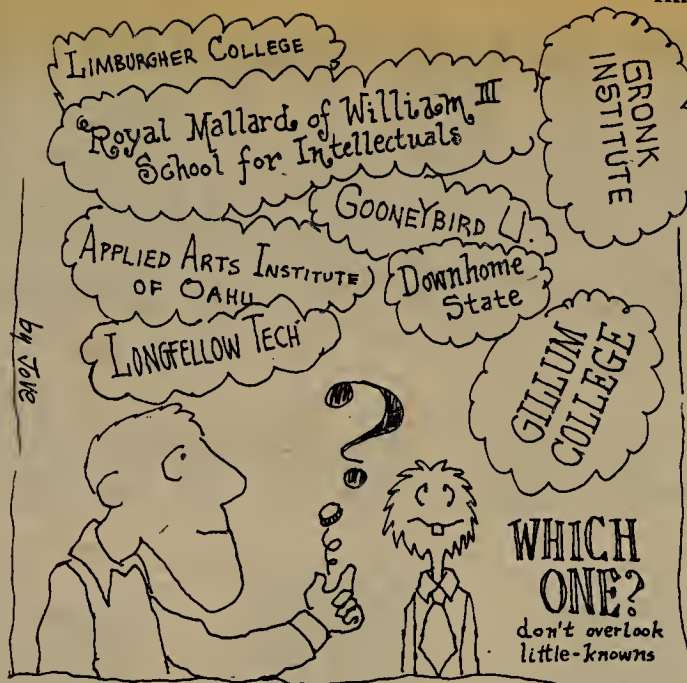 LIMBURGHER COLLEGE
"Royal Mallard of William III
School for Intellectuals
GRONK
INSTITUTE
GOONEYBIRD U.
APPLIED ARTS INSTITUTE
OF OAHU
Downhome
State
LONGFELLOW TECH
GILLUM
COLLEGE
by Jove
?
WHICH
ONE?
don't overlook
little-knowns